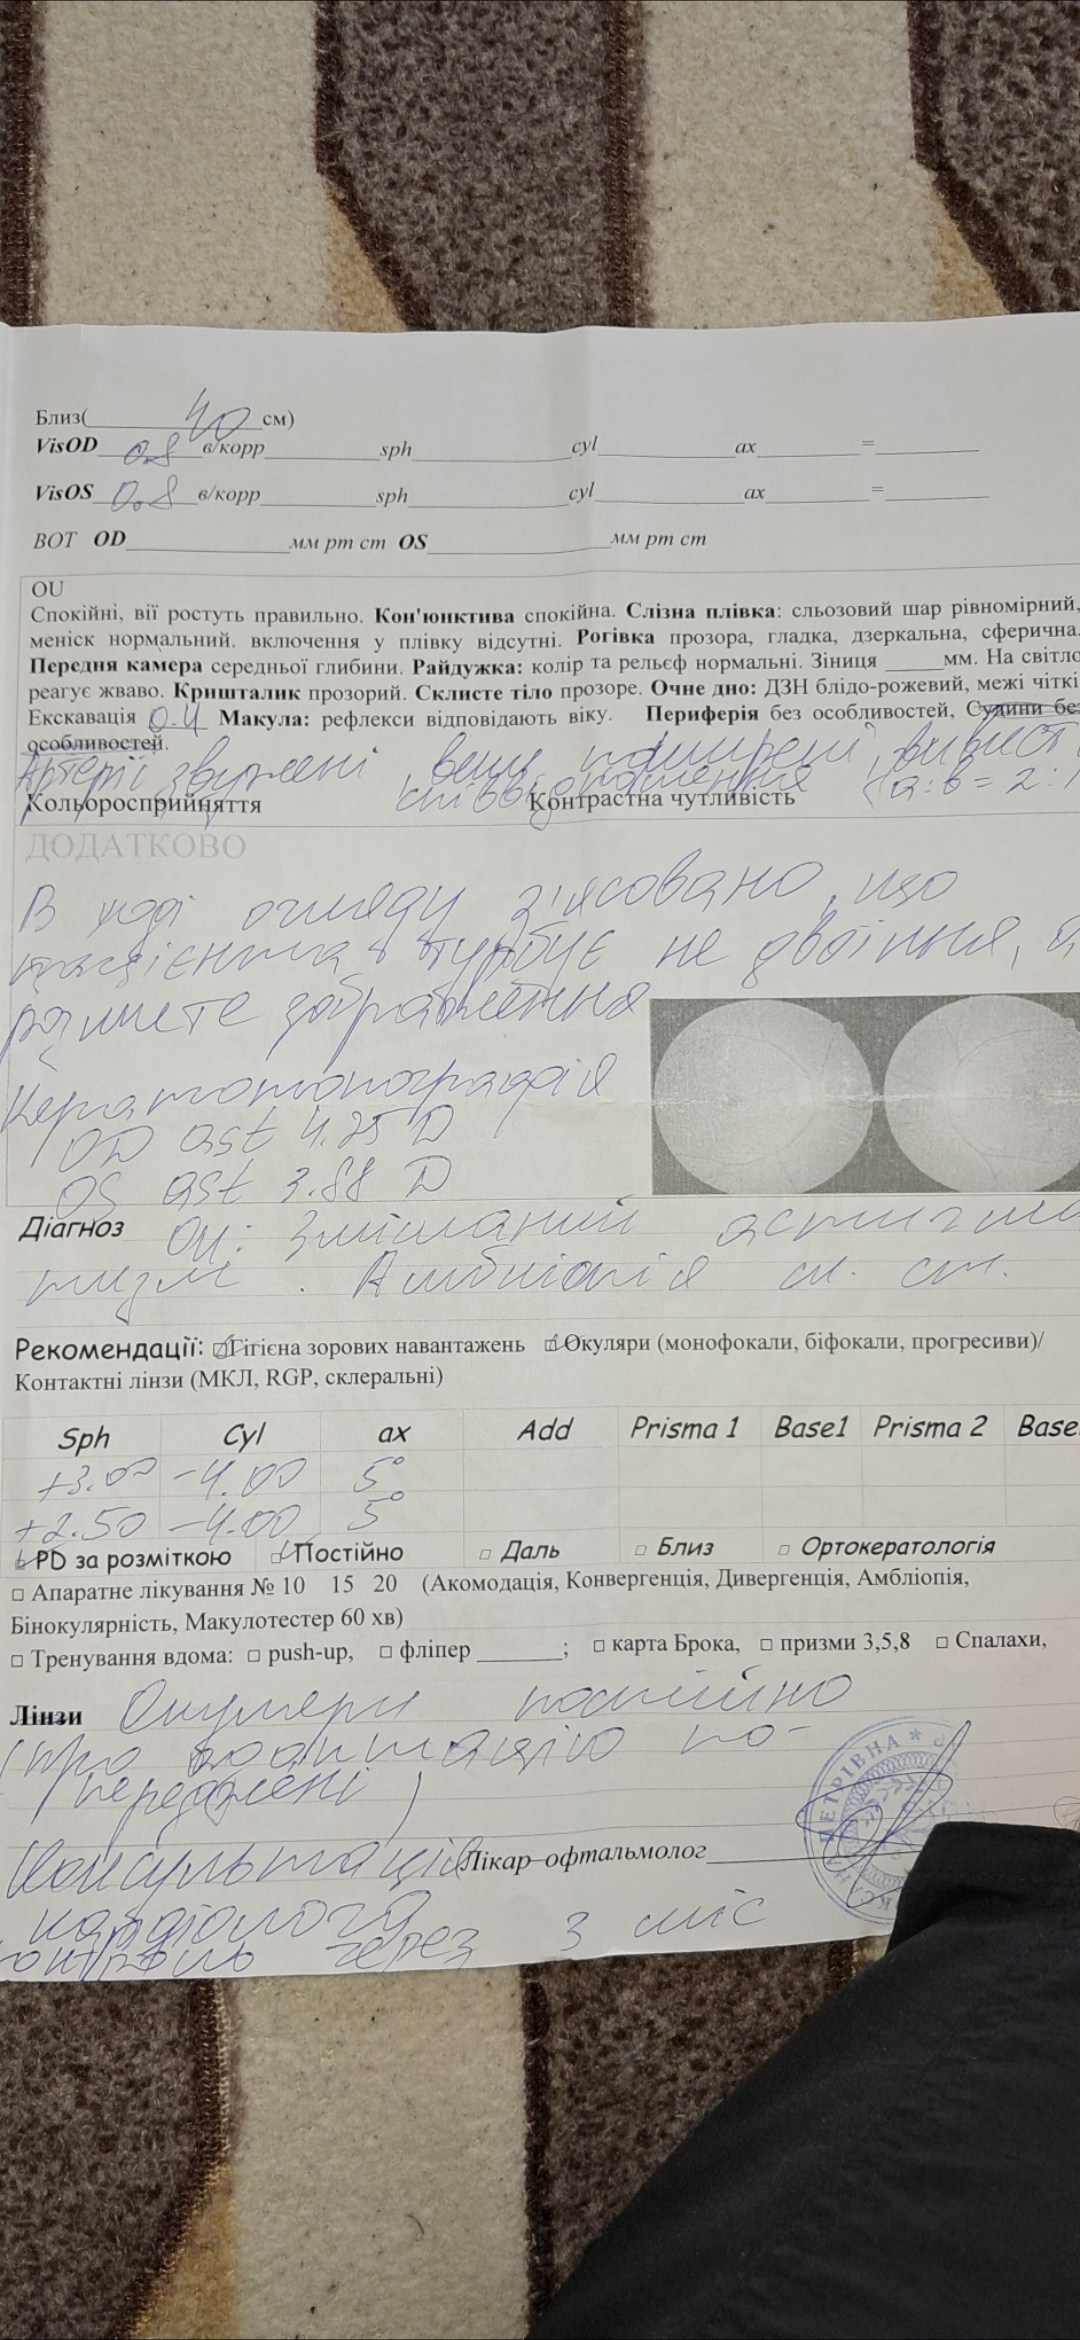 Близ( 40 см)
VisOD 0.8 в/корр sph cyl ax =
VisOS 0.8 в/корр sph cyl ax =
ВОТ OD мм рт ст OS мм рт ст
OU
Спокійні, вії ростуть правильно. Кон'юнктива спокійна. Слізна плівка: сльозовий шар рівномірний,
меніск нормальний. включення у плівку відсутні. Рогівка прозора, гладка, дзеркальна, сферична.
Передня камера середньої глибини. Райдужка: колір та рельєф нормальні. Зіниця мм. На світло
реагує жваво. Кришталик прозорий. Склисте тіло прозоре. Очне дно: ДЗН блідо-рожевий, межі чіткі
Екскавація 0.4 Макула: рефлекси відповідають віку. Периферія без особливостей, Судини без
особливостей.
Артерії звужені, вени розширені,
співвідношення (а:в = 2:
Кольоросприйняття Контрастна чутливість
ДОДАТКОВО
В ході огляду з'ясовано, що
пацієнта турбує не двоїння, а
розмите зображення
Кератотопографія
OD ast 4.25 D
OS ast 3.88 D
Діагноз OU: Змішаний астигма
тизм. Амбліопія сл. ст.
Рекомендації: Гігієна зорових навантажень Окуляри (монофокали, біфокали, прогресиви)/
Контактні лінзи (МКЛ, RGP, склеральні)
Sph Cyl ax Add Prisma 1 Base1 Prisma 2 Base
+3.00 -4.00 5°
+2.50 -4.00 5°
PD за розміткою Постійно Даль Близ Ортокератологія
Апаратне лікування № 10 15 20 (Акомодація, Конвергенція, Дивергенція, Амбліопія,
Бінокулярність, Макулотестер 60 хв)
Тренування вдома: push-up, фліпер ; карта Брока, призми 3,5,8 Спалахи,
Лінзи Окуляри постійно
(про адаптацію по-
переджені)
Консультація Лікар-офтальмолог
кардіолога
контроль через 3 міс
ПЕТРІВНА *